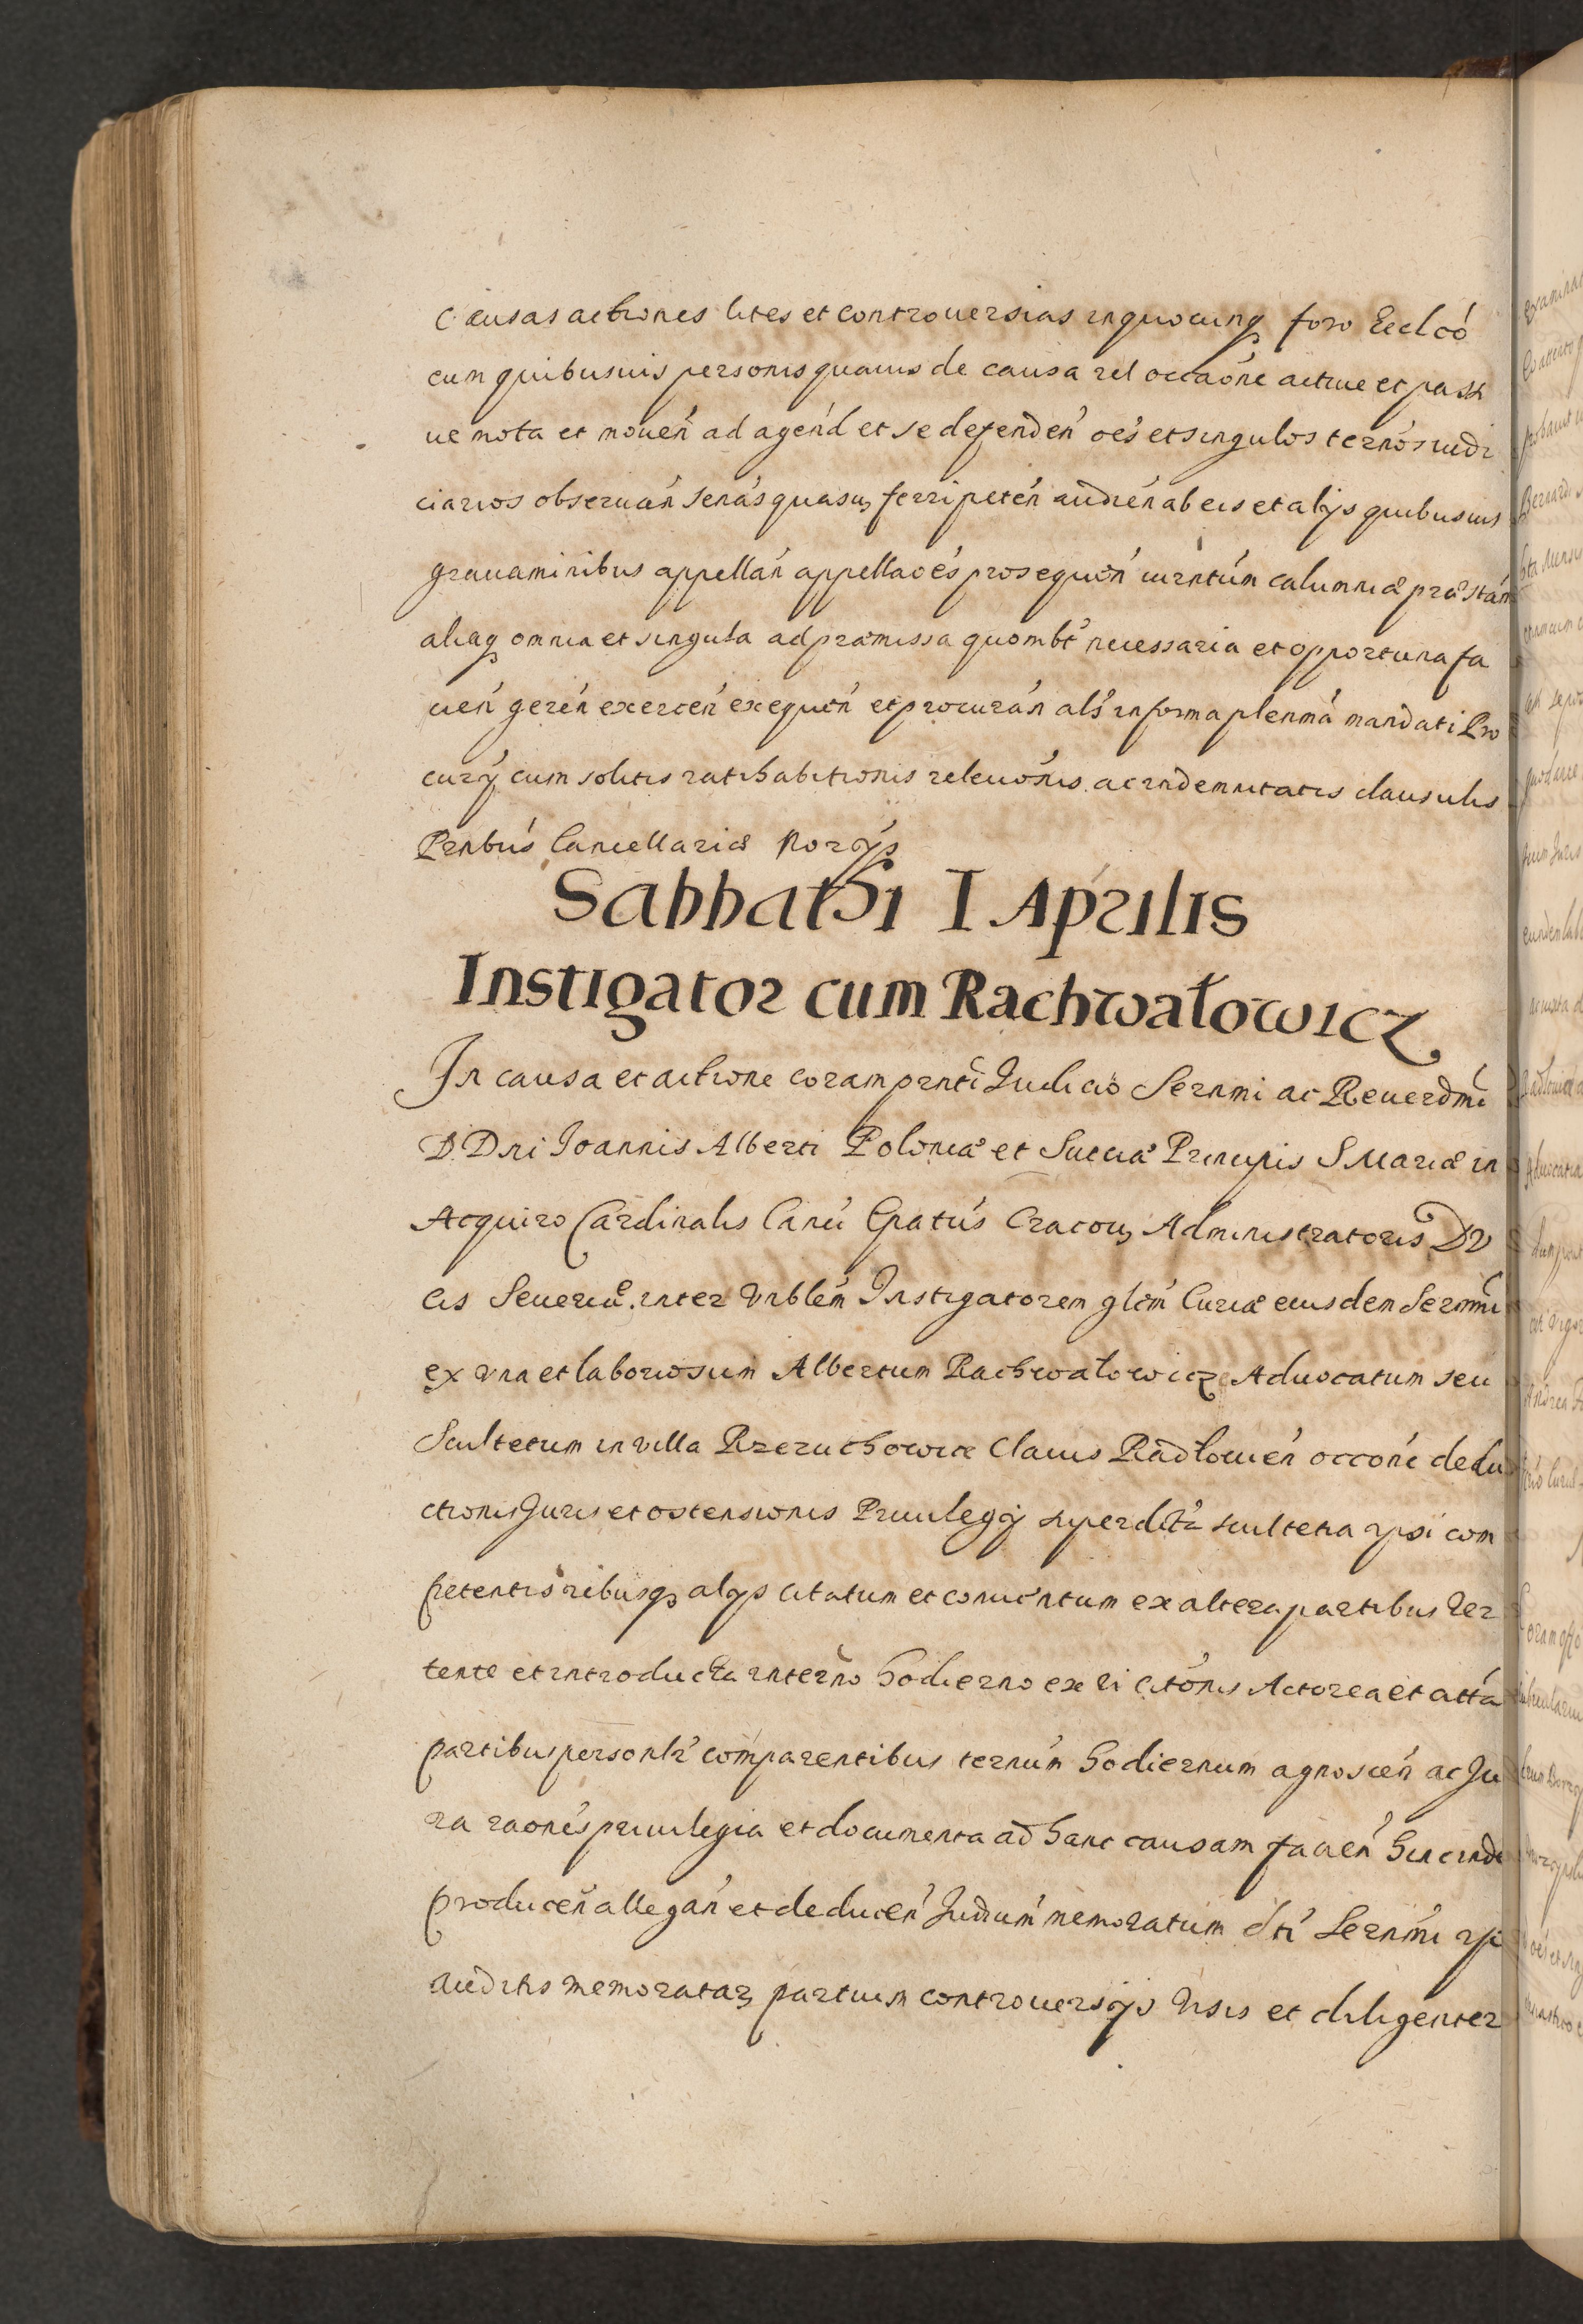 Causas actiones lites et controuersias in quocunq foro Eccl̃co
cum quibusuis personis quauis de causa vel occãone actiue et passi
ue mota et mouen̄ ad agen̄d et se defenden̄ oēs et singulos ternōs iudi
ciarios obseruan̄ Senās quasuɜ ferri peten̄ audien̄ ab eis et alÿs quibusuis
grauaminibus appellan̄ appellaoēs prosequen̄ iurntūm calumniæ præstan̄
aliaq omnia et singula ad præmissa quomlbt̄ necessaria et opportuna fa
cien̄ geren̄ exercen̄ exequen̄ et procuran̄ als̄ in forma plenmā mandati Pro
curÿ cum solitis ratihabitionis releuōnis ac indemnitatis clausulis
Prntbus̄ Cancellariæ NorÿS
Sabbathi I Aprilis
Instigator cum Rachwałowicz
In causa et actione coram prntī Iudicio Sernmi ac Reuerdmī
D. Dni Ioannis Alberti Poloniæ et Sueciæ Principis S Mariæ in
Acquiro Cardinalis Canci Epatūs Cracouɜ Administratoris DV
cis Seueriæ. inter Vnblēm Instigatorem glēm Curiæ eiusdem Sernmī
ex vna et laboriosum Albertum Rachwałowicz Aduocatum seu
Scultetum in villa Przeruchowice Clauis Radłouien̄ occonē dedu
ctionis Iuris et ostensionis Priuilegÿ super dctā scultetia ipsi com
petentis ribusqɜ alÿs citatum et conuentum ex altera partibus ver
tente et introducta in terno hodierno ex vi citōnis Actorea et cittā
partibus personlr̄ comparentibus ternūm hodiernum agnoscen̄ ac Iu
ra raonēs priuilegia et documenta ad hanc causam facien̄ hinc inde
producen̄ allegan̄ et deducen̄ Iudiūm memoratum dti Sernmī ip
auditis memorataꝝ partium controuersÿs visis et diligenter